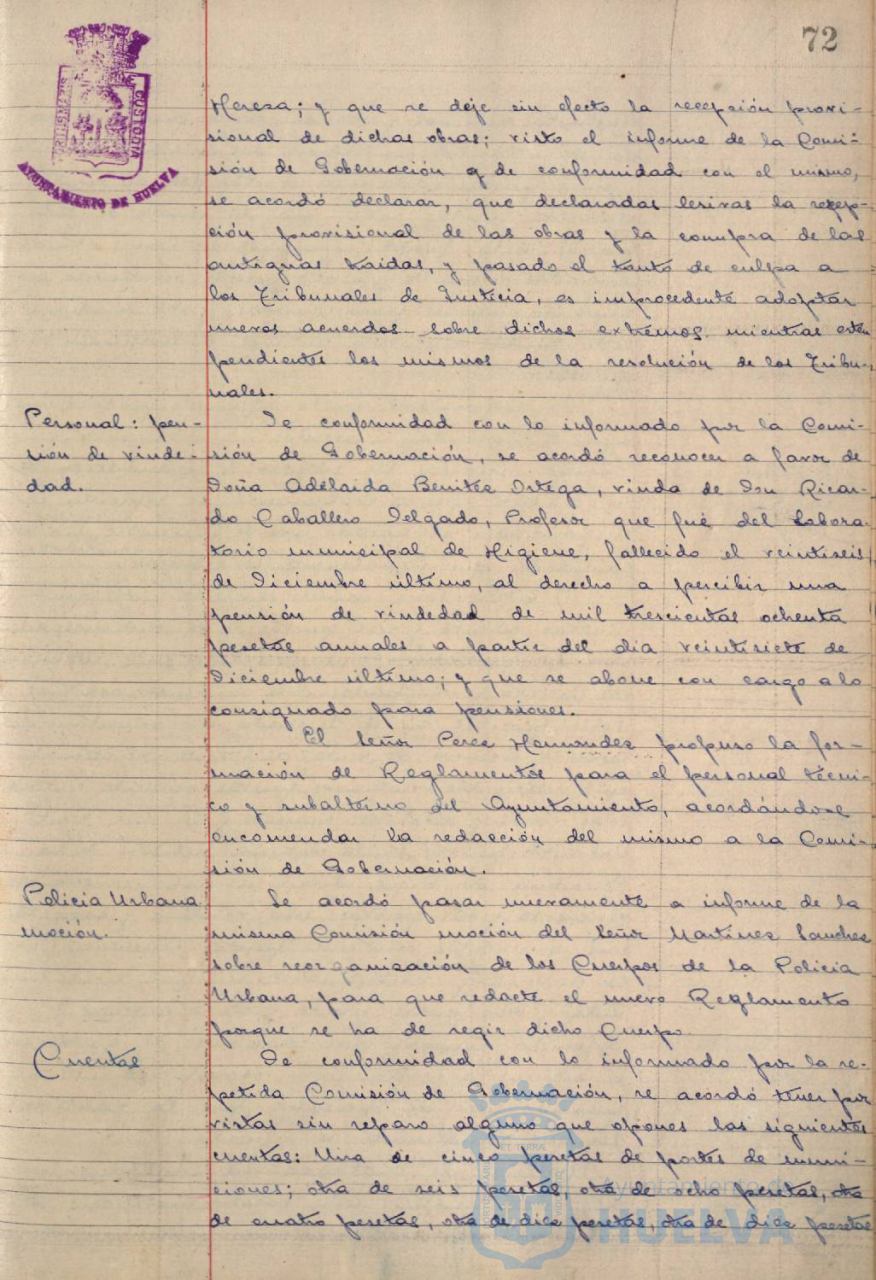 72
PORTUS MARIS
CUSTODIA
AYUNTAMIENTO DE HUELVA
Heresa; y que se deje sin efecto la recepción provi-
sional de dichas obras; visto el informe de la Comi-
sión de Gobernación y de conformidad con el mismo,
se acordó declarar, que declaradas lesivas la recep-
ción provisional de las obras y la compra de las
antiguas, y pasado el tanto de culpa a
los Tribunales de Justicia, es improcedente adoptar
nuevos acuerdos sobre dichos extremos mientras esten
pendientes los mismos de la resolución de los Tribu-
nales.
Personal: pen-
sión de viude-
dad.
De conformidad con lo informado por la Comi-
sión de Gobernación, se acordó reconocer a favor de
Doña Adelaida Benites Ortega, viuda de Don Ricar-
do Caballero Delgado, Profesor que fué del Labora-
torio municipal de Higiene, fallecido el veintiseis
de Diciembre último, al derecho a percibir una
pensión de viudedad de mil trescientas ochenta
pesetas anuales a partir del dia veintisiete de
Diciembre último; y que se abone con cargo a lo
consignado para pensiones.
El Señor Perez Hernandez propuso la for-
mación de Reglamentos para el personal técni-
co y subalterno del Ayuntamiento, acordándose
encomendar la redacción del mismo a la Comi-
sión de Gobernación.
Policia Urbana
moción.
Se acordó pasar nuevamente a informe de la
misma Comisión moción del Señor Martinez Sanchez
sobre reorganización de los Cuerpos de la Policia
Urbana, para que redacte el nuevo Reglamento
porque se ha de regir dicho Cuerpo.
Cuentas
De conformidad con lo informado por la re-
petida Comisión de Gobernación, se acordó tener por
vistas sin reparo alguno que opones las siguientes
cuentas: Una de cinco pesetas de portes de muni-
ciones; otra de seis pesetas, otra de ocho pesetas, otra
de cuatro pesetas, otra de diez pesetas, otra de diez pesetas
Ayuntamiento de
HUELVA